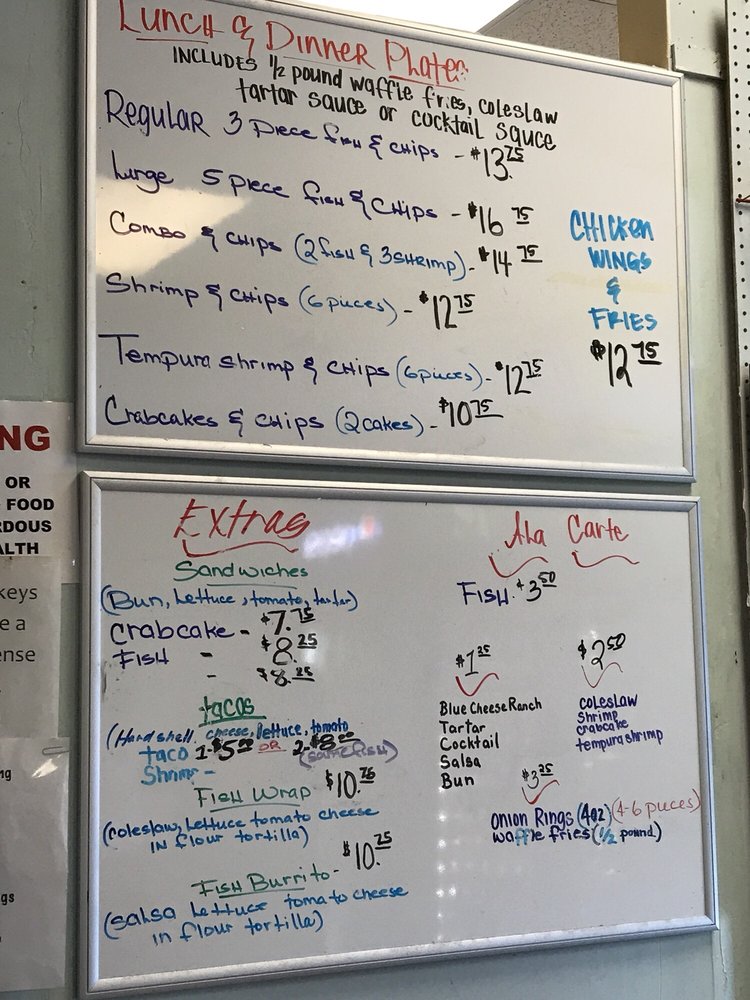 Lunch & Dinner Plates
INCLUDES 1/2 pound waffle fries, coleslaw
tartar sauce or cocktail sauce
Regular 3 piece fish & chips - $13.75
Large 5 piece fish & chips - $16 75
Combo & chips (2 fish & 3 shrimp) - $14 75
Shrimp & chips (6 pieces) - $12 75
Tempura shrimp & chips (6 pieces) - $12 75
Crabcakes & chips (2 cakes) - $10 75
CHICKEN
WINGS
&
FRIES
$12 75
NG
OR
FOOD
RDOUS
ALTH
keys
e a
ense
Extras
Sandwiches
(Bun, lettuce, tomato, tartar)
Crabcake - $7.75
FISH - $8.25
- $8.25
tacos
(Hard shell, cheese, lettuce, tomato
taco 1-$5 OR 2-$8 (same fish)
Shrimp -
Fish Wrap $10.75
(coleslaw, lettuce tomato cheese
in flour tortilla)
Fish Burrito - $10.75
(salsa lettuce tomato cheese
in flour tortilla)
Ala Carte
FISH. $3 50
$1 25
Blue Cheese Ranch
Tartar
Cocktail
Salsa
Bun
$2 50
coleslaw
shrimp
crabcake
tempura shrimp
$3.75
Onion Rings (4oz) (4-6 pieces)
waffle fries (1/2 pound)